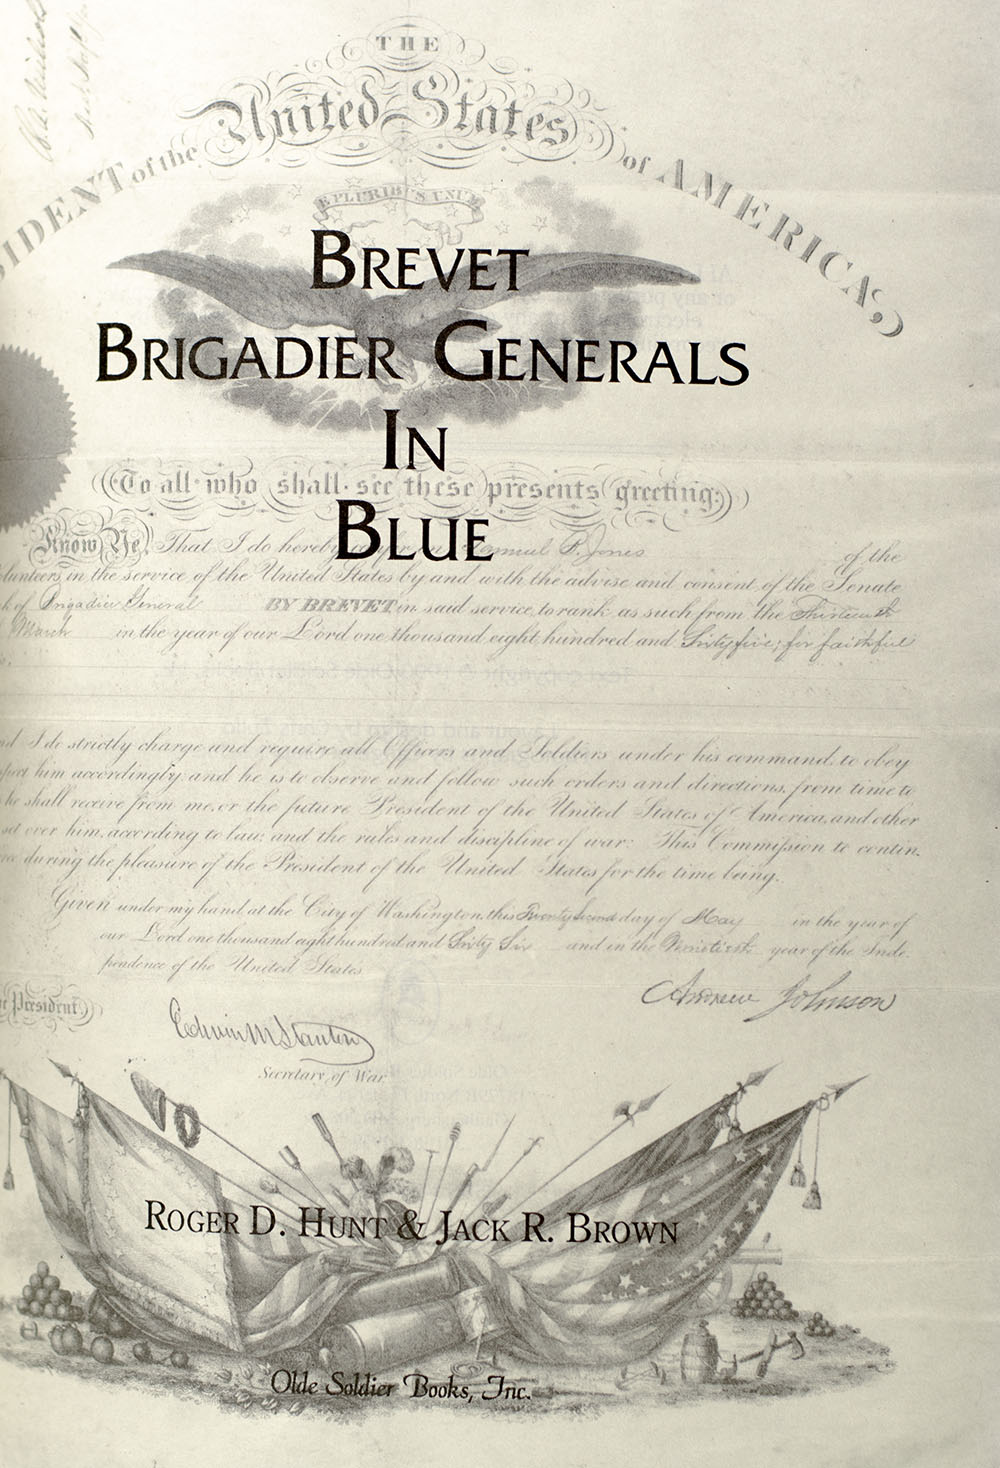 THE
United States
IDENT of the of AMERICA,
E PLURIBUS UNUM
BREVET
BRIGADIER GENERALS
IN
BLUE
To all who shall see these presents greeting:
Know Ye, That I do hereby Samuel P. Jones of the
lunteers in the service of the United States by and with the advise and consent of the Senate
k of Brigadier General BY BREVET in said service, to rank as such from the Thirteenth
March in the year of our Lord one thousand eight hundred and Sixty five; for faithful
nd I do strictly charge and require all Officers and Soldiers under his command, to obey
spect him accordingly: and he is to observe and follow such orders and directions, from time to
he shall receive from me, or the future President of the United States of America, and other
set over him, according to law; and the rules and discipline of war: This Commission to contin.
rce during the pleasure of the President of the United States for the time being.
Given under my hand at the City of Washington, this Twenty Second day of May in the year of
our Lord one thousand eight hundred and Sixty Six and in the Ninetieth year of the Inde
pendence of the United States
e President Andrew Johnson
Edwin M Stanton
Secretary of War
ROGER D. HUNT & JACK R. BROWN
Olde Soldier Books, Inc.